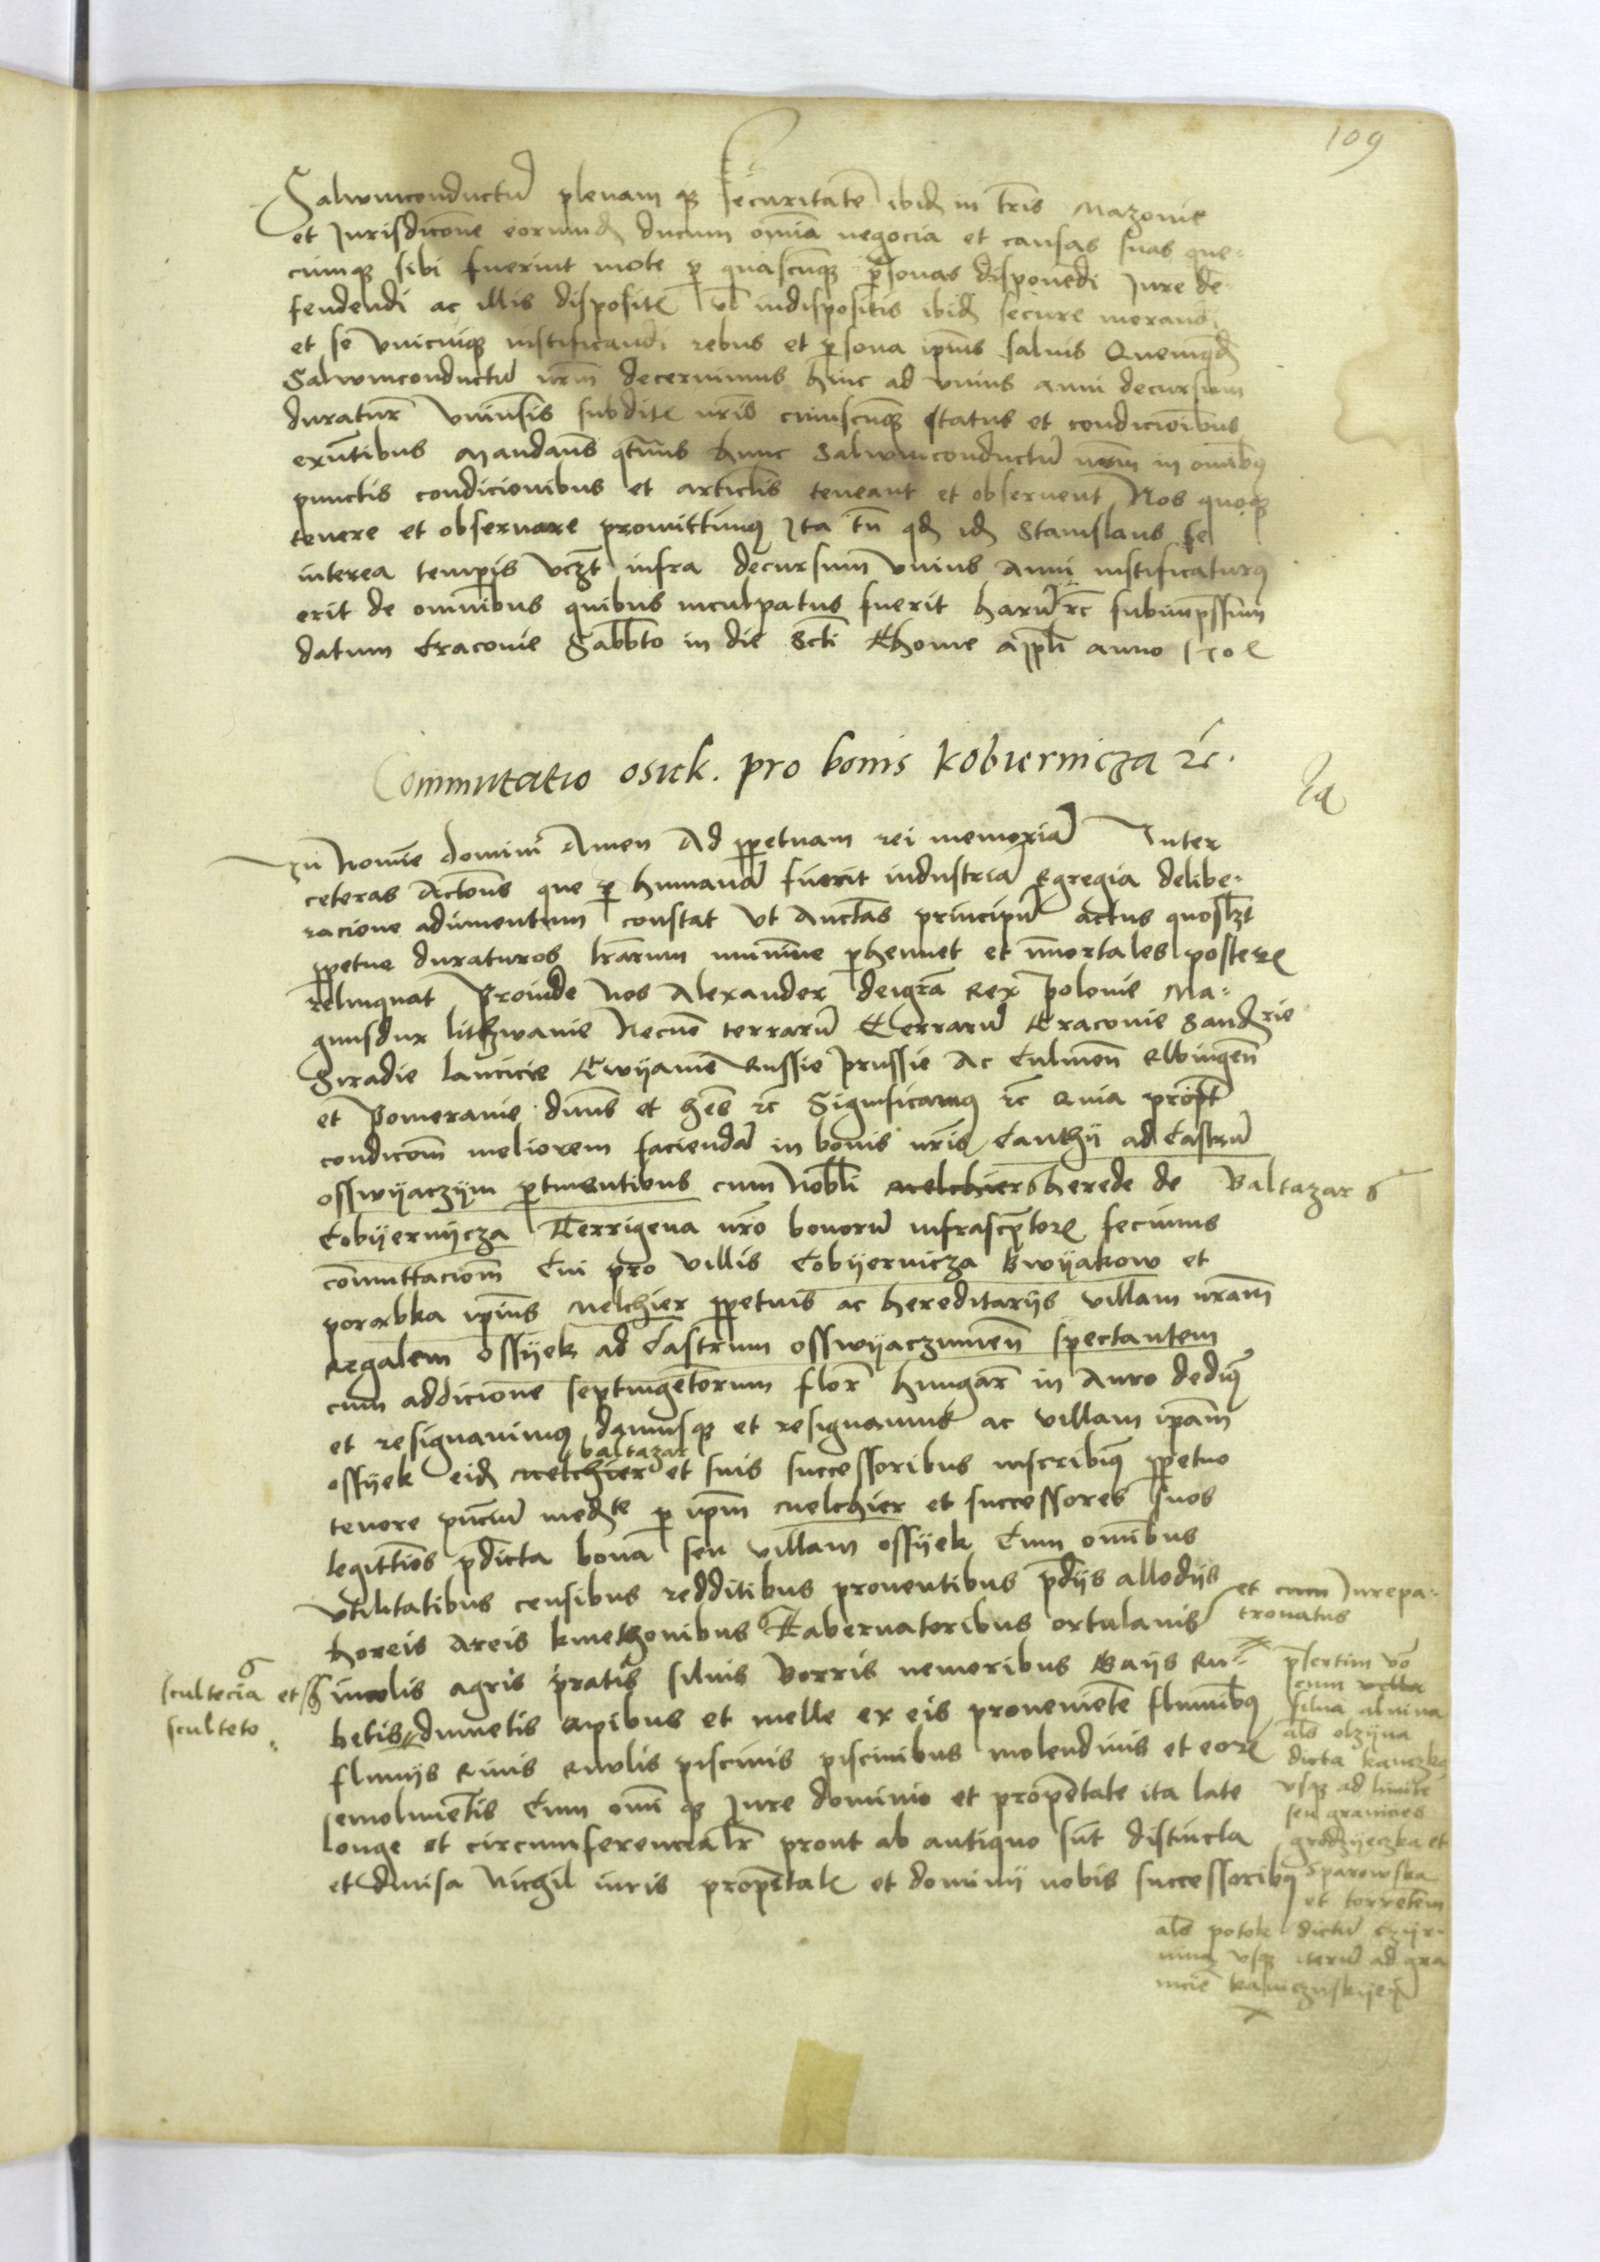 109
Salwumconductu plenam qz securitate ibid in tris Mazovie
et Jurisdicone eorund ducum omnia negocia et causas suas que-
cumqz sibi fuerint mote p quascunqz psonas disponedi Jure de-
fendendi ac illis dispositis vl indispositis ibid secure morandi
et se vnicuiqz iustificandi rebus et psona ipius salvis Quemqd
Salwumconductu nrm decernimus hinc ad vnius anni decursum
duratur vniusis subditis nris cuiuscunqz status et condicionibus
exntibus Mandans qtnus hunc Salwumconductu nrm in omibus
punctis condicionibus et articlis teneant et observent Nos quoqz
tenere et observare promittimus Ita tn qd id Stanislaus se
interea temporis vczt infra decursum vnius Anni iustificaturus
erit de omnibus quibus inculpatus fuerit haru rc subimpssum
datum Cracovie Sabbto in die Scti Thome appli anno
Commutatio osiek. pro bonis kobiernicza rc.
In Nomie domini Amen Ad ppetuam rei memoria Inter
ceteras Actons que p humana fuerit industria Egregia delibe-
racione adiumentum constat vt Auctas principu actus quoslzt
ppetue duraturos lrarum munimine phennet et immortales posteris
relinquat Proinde Nos Alexander deigra Rex polonie Ma-
gnusdux lithwanie Necnon terraru Terraru Cracovie Sandrie
Siradie lancicie Cwyavie Russie prussie Ac Culmen Elbingen
et Pomeranie duns et hes rc Significamus rc Quia propt
condicom meliorem facienda in bonis nris Canthy ad Castru
osswyaczym ptinentibus cum Nobli Melchiers herede de Baltazar s
Cobyernycza Terrigena nro bonoru infrascptoris fecimus
comuttaciom Cui pro villis Cobyernicza Bwyakow et
porabka ipius Melchier ppetuis ac hereditariis villam nram
Regalem ossyek ad Castrum osswyaczimien spectantem
cum addicione septingetorum flor hungar in Auro dedimus
et resignavimus damusqz et resignamus ac villam ipam
baltazar
ossyek eid Melchier et suis successoribus inscribimus ppetuo
tenore pnciu medte p ipm Melchier et successores suos
legittios pdicta bona seu villam ossyek Cum omibus
vtilitatibus censibus redditibus proventibus pdiis allodiis
et cum Jurepa-
tronatus
horeis Areis kmethonibus Tabernatoribus ortulanis
scultecia et
sculteto
inwlis agris pratis silvis borris nemoribus Gaiis Ru-
betis dumetis Apibus et melle ex eis proveniente fluminibus
fluviis Rivis Rivulis piscinis piscinibus molendinis et eoris
emolumetis Cum omi qz Jure dominio et proprietate ita late
longe et circumferencialr prout ab antiquo sut distincta
et divisa Nichil iuris proprietatis et dominii nobis successoribus
psertim vo
cum villa
silva alnina
als olzyna
dicta kanczka
vsqz ad limite
seu granicies
grodzyeczka et
Sparowska
et torretem
als potok dictu
vsqz iteru ad gra
nicie